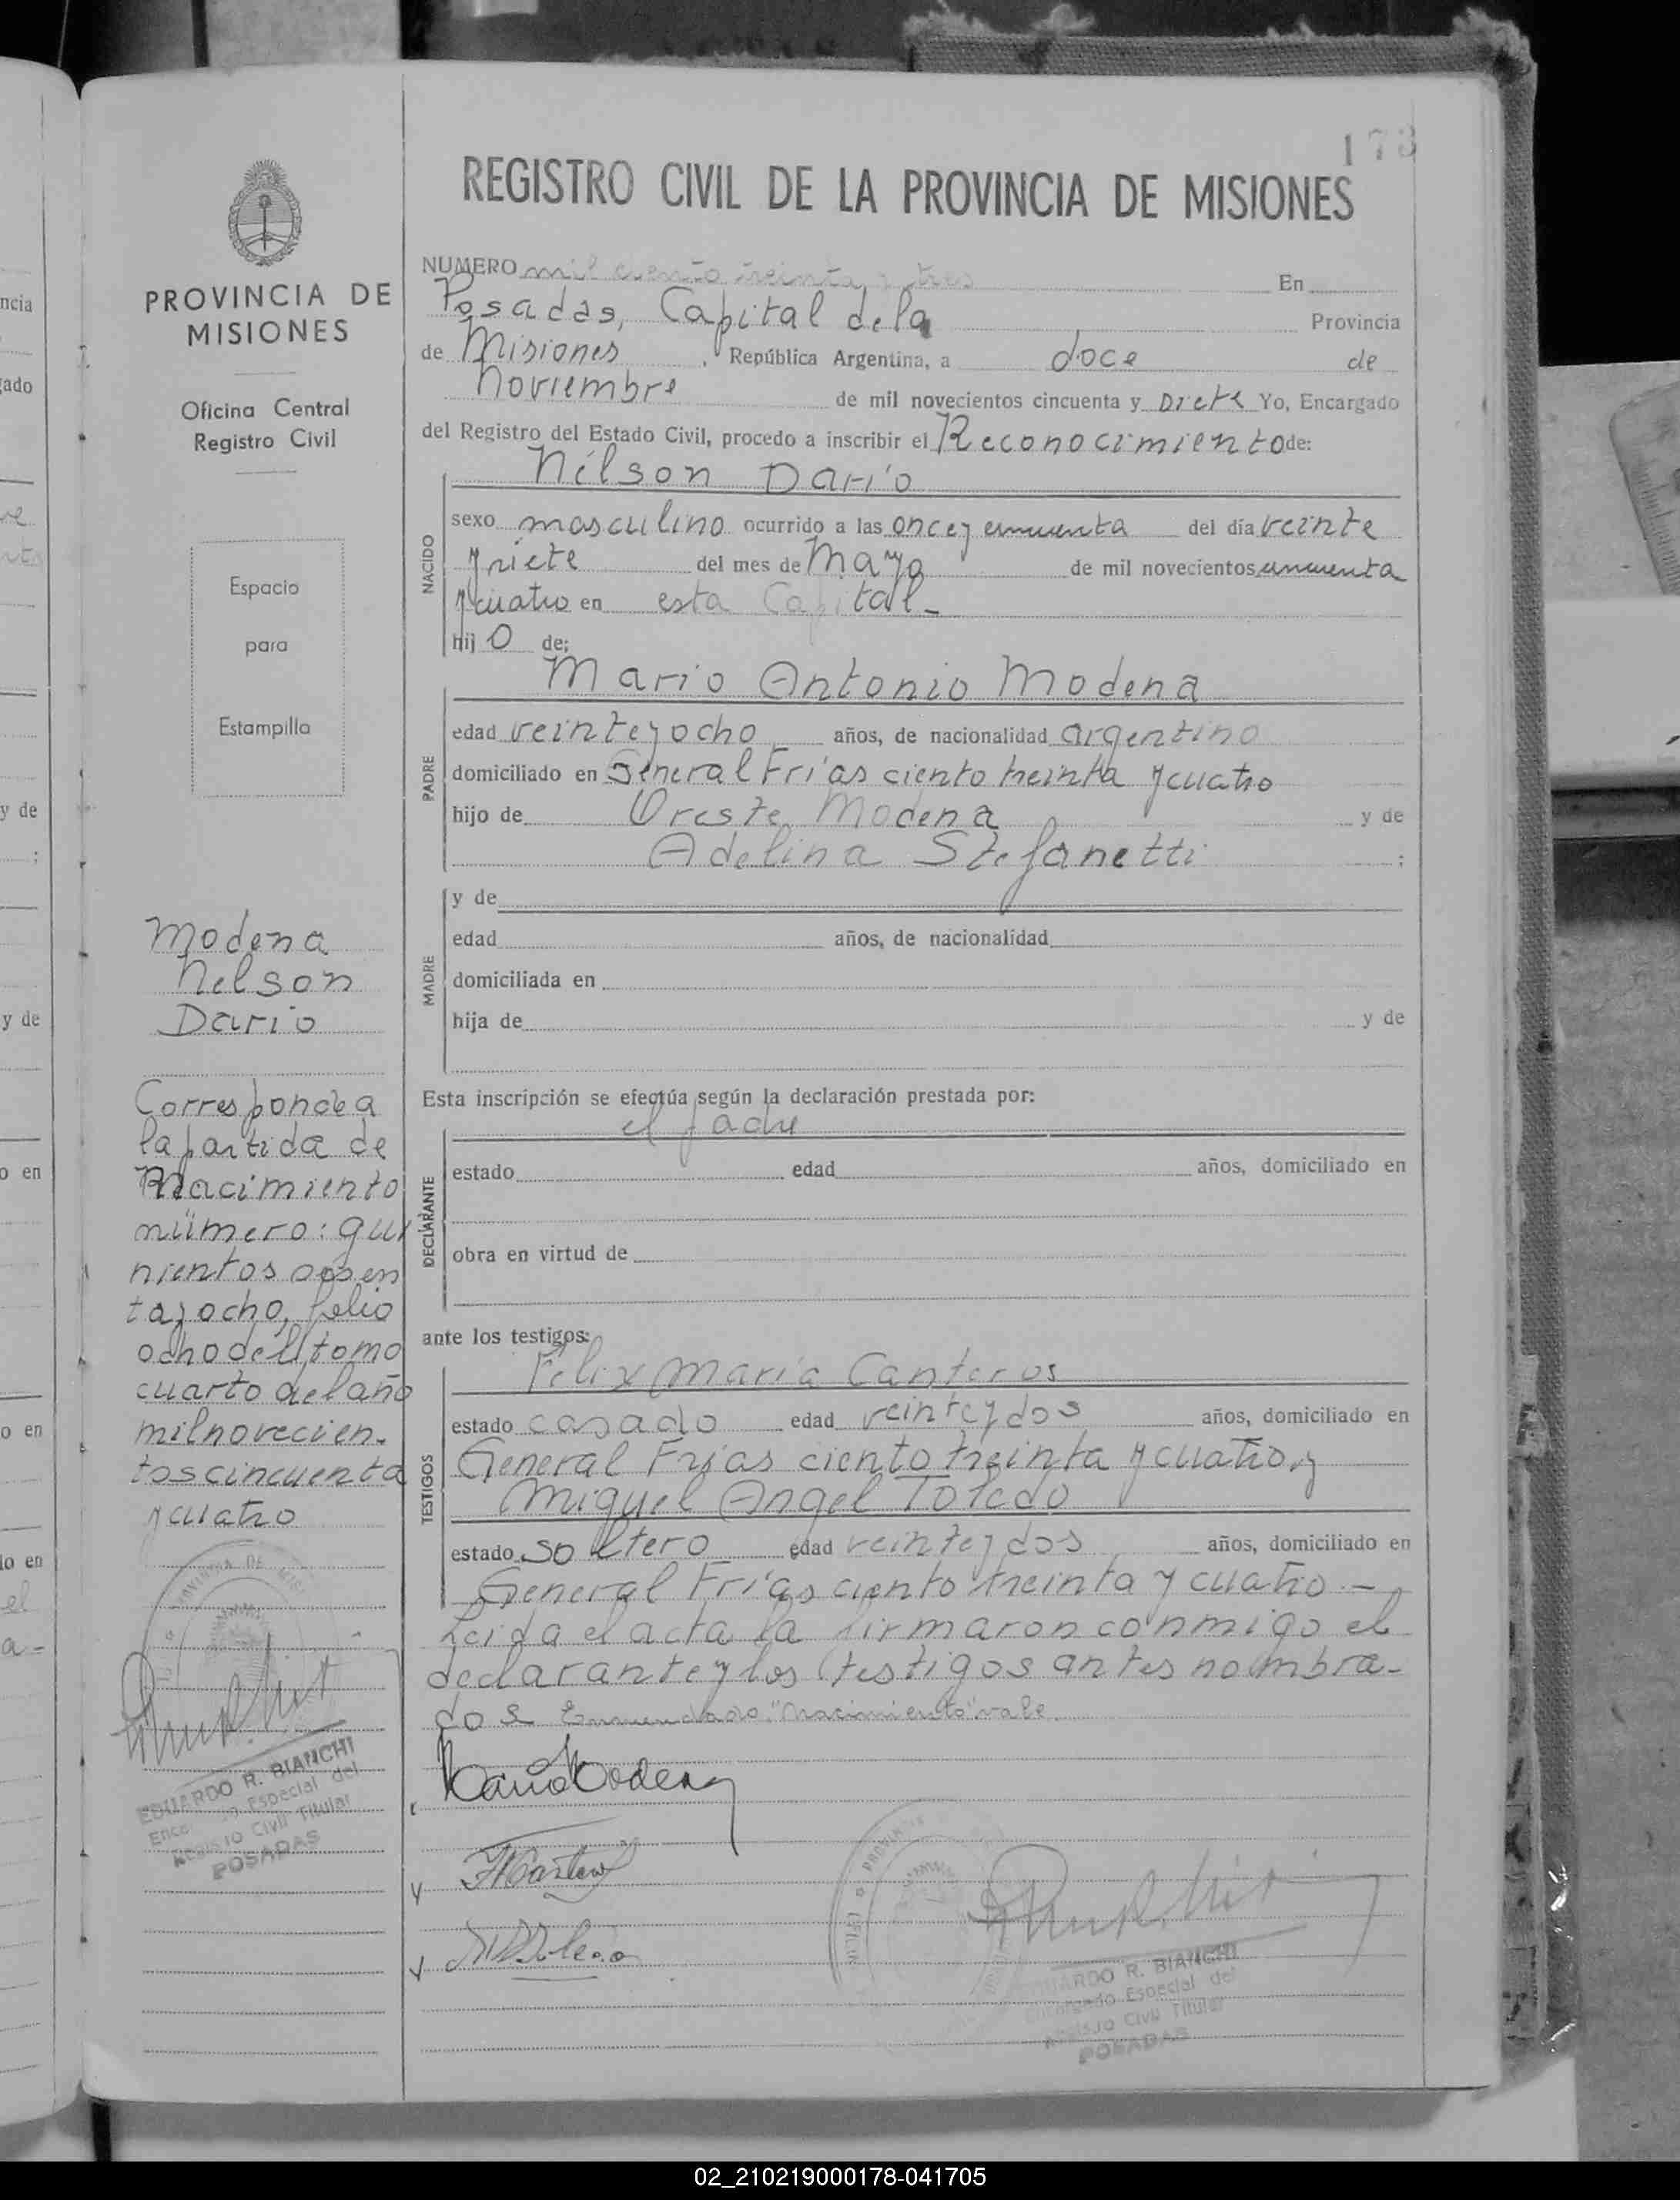 173
REGISTRO CIVIL DE LA PROVINCIA DE MISIONES
NUMERO mil ciento treinta y tres En
Posadas, Capital de la Provincia
de Misiones, República Argentina, a doce de
noviembre de mil novecientos cincuenta y siete Yo, Encargado
del Registro del Estado Civil, procedo a inscribir el Reconocimiento de:
Nelson Darío
NACIDO
sexo masculino ocurrido a las once y cincuenta del día veinte
y siete del mes de Mayo de mil novecientos cincuenta
y cuatro en esta Capital.-
hij o de:
PADRE
Mario Antonio Modena
edad veinte y ocho años, de nacionalidad argentino
domiciliado en General Frías ciento treinta y cuatro
hijo de Oreste Modena y de
Adelina Stefanetti ;
MADRE
y de
edad años, de nacionalidad
domiciliada en
hija de y de
Esta inscripción se efectúa según la declaración prestada por:
DECLARANTE
el padre
estado edad años, domiciliado en
obra en virtud de
ante los testigos:
TESTIGOS
Felix María Canteros
estado casado edad veinte y dos años, domiciliado en
General Frías ciento treinta y cuatro, y
Miguel Angel Toledo
estado soltero edad veinte y dos años, domiciliado en
General Frías ciento treinta y cuatro.-
Leida el acta la firmaron conmigo el
declarante y los testigos antes nombra-
dos Enmendado: "Nacimiento" vale.
EDUARDO R. BIANCHI
Encargado Especial del
Registro Civil Titular
POSADAS
PROVINCIA DE
MISIONES
Oficina Central
Registro Civil
Espacio
para
Estampilla
Modena
Nelson
Dario
Corresponde a
la partida de
Nacimiento
número: qui
nientos
ta y ocho, folio
ocho del tomo
cuarto del año
mil novecien-
tos cincuenta
y cuatro
EDUARDO R. BIANCHI
Especial del
Registro Civil Titular
POSADAS
ncia
gado
y de
;
y de
o en
o en
lo en
el
a-
02_210219000178-041705